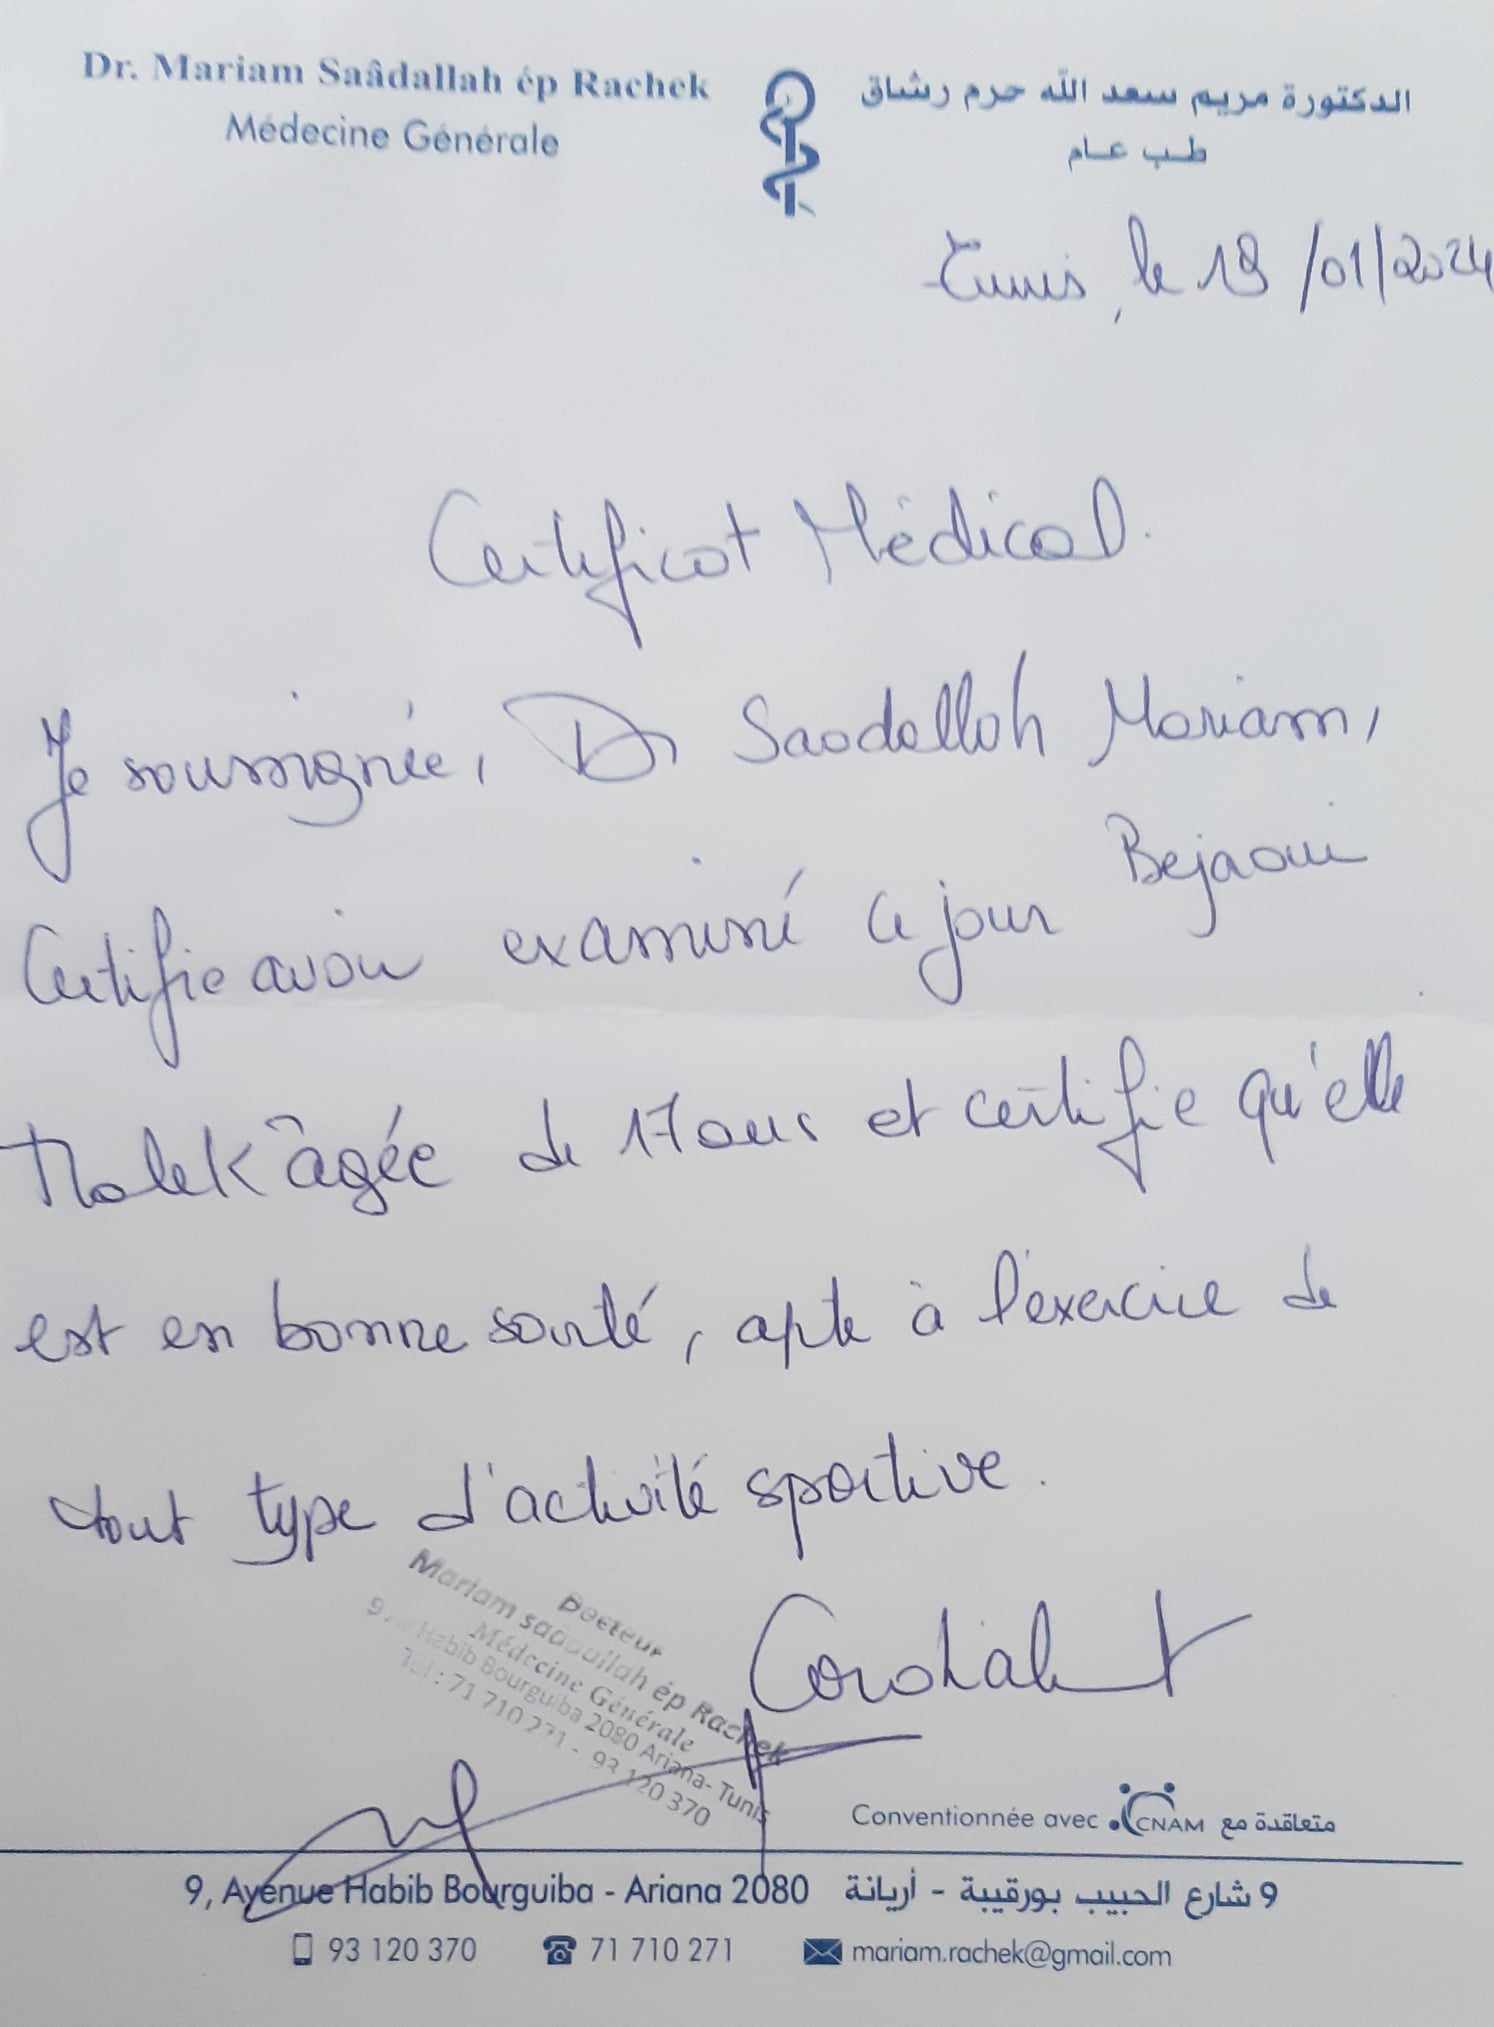 Dr. Mariam Saâdallah ép Rachek
Médecine Générale
الدكتورة مريم سعد الله حرم رشاق
طب عام
Tunis, le 19/01/2024
Certificat Médical.
Je soussignée, Dr Saadallah Mariam,
Certifie avoir examiné ce jour Bejaoui
Malek âgée de 17 ans et certifie qu'elle
est en bonne santé, apte à l'exercice de
tout type d'activité sportive.
Cordialt
Docteur
Mariam saadallah ép Rachek
Médecine Générale
9, Av Habib Bourguiba 2080 Ariana- Tunis
Tel : 71 710 271 - 93 120 370
Conventionnée avec CNAM متعاقدة مع
9, Avenue Habib Bourguiba - Ariana 2080 9 شارع الحبيب بورقيبة - أريانة
93 120 370 71 710 271 mariam.rachek@gmail.com